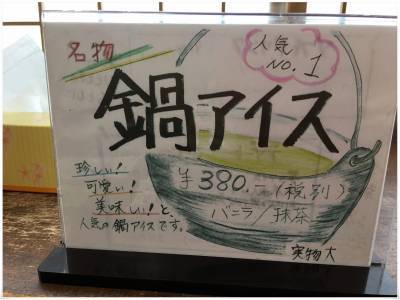 名物
人気
NO.1
鍋アイス
¥380.-(税別)
バニラ/抹茶
珍しい!
可愛い!
美味しい!と、
人気の鍋アイスです。
実物大